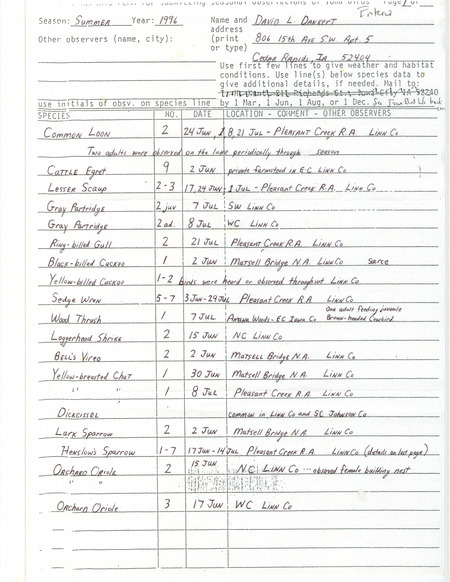 Season: Summer Year: 1996 Name and David L. Dankert
Other observers (name, city): address
(print 806 15th Ave SW Apt. 5
or type)
Cedar Rapids, IA 52404
Use first few lines to give weather and habitat
conditions. Use line(s) below species data to
give additional details, if needed. Mail to:
use initials of obsv. on species line by 1 Mar, 1 Jun, 1 Aug, or 1 Dec.
SPECIES NO. DATE LOCATION - COMMENT - OTHER OBSERVERS
Common Loon 2 24 Jun, 8, 21 Jul - Pleasant Creek R.A. Linn Co
Two adults were observed on the lake periodically through season
Cattle Egret 9 2 Jun private farmstead in E-C Linn Co
Lesser Scaup 2-3 17, 24 Jun, 1 Jul - Pleasant Creek R.A. Linn Co
Gray Partridge 2 juv 7 Jul SW Linn Co
Gray Partridge 2 ad. 8 Jul WC Linn Co
Ring-billed Gull 2 21 Jul Pleasant Creek R.A Linn Co
Black-billed Cuckoo 1 2 Jun Matsell Bridge N.A. Linn Co scarce
Yellow-billed Cuckoo 1-2 birds were heard or observed throughout Linn Co
Sedge Wren 5-7 3 Jun-29 Jul Pleasant Creek R.A Linn Co
Wood Thrush 1 7 Jul Amana Woods - EC Iowa Co One adult feeding juvenile
Brown-headed Cowbird
Loggerhead Shrike 2 15 Jun NC Linn Co
Bell's Vireo 2 2 Jun Matsell Bridge N.A. Linn Co
Yellow-breasted Chat 1 30 Jun Matsell Bridge N.A. Linn Co
" " 1 8 Jul Pleasant Creek R.A Linn Co
Dickcissel common in Linn Co and SC Johnson Co
Lark Sparrow 2 2 Jun Matsell Bridge N.A. Linn Co
Henslow's Sparrow 1-7 17 Jun-14 Jul Pleasant Creek R.A Linn Co (details on last page)
Orchard Oriole 2 15 Jun NC Linn Co ... observed female building nest
" "
Orchard Oriole 3 17 Jun WC Linn Co